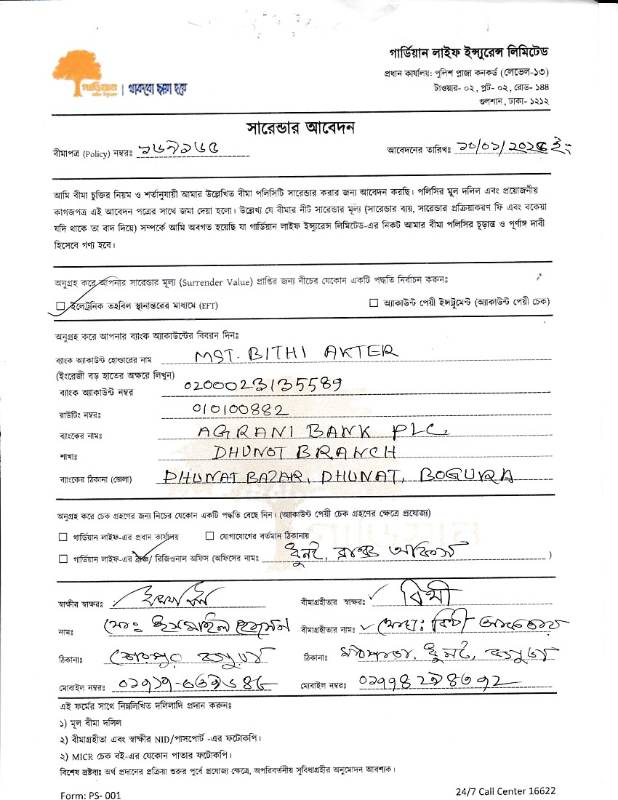 গার্ডিয়ান লাইফ ইন্স্যুরেন্স লিমিটেড
প্রধান কার্যালয়: পুলিশ প্লাজা কনকর্ড (লেভেল-১৩)
টাওয়ার- ০২, প্লট- ০২, রোড- ১৪৪
গুলশান, ঢাকা- ১২১২
সারেন্ডার আবেদন
বীমাপত্র (Policy) নম্বরঃ
আবেদনের তারিখঃ
আমি বীমা চুক্তির নিয়ম ও শর্তানুযায়ী আমার উল্লেখিত বীমা পলিসিটি সারেন্ডার করার জন্য আবেদন করছি। পলিসির মূল দলিল এবং প্রয়োজনীয়
কাগজপত্র এই আবেদন পত্রের সাথে জমা দেয়া হলো। উল্লেখ্য যে বীমার নীট সারেন্ডার মূল্য (সারেন্ডার ব্যয়, সারেন্ডার প্রক্রিয়াকরণ ফি এবং বকেয়া
যদি থাকে তা বাদ দিয়ে) সম্পর্কে আমি অবগত হয়েছি যা গার্ডিয়ান লাইফ ইন্স্যুরেন্স লিমিটেড-এর নিকট আমার বীমা পলিসির চূড়ান্ত ও পূর্ণাঙ্গ দাবী
হিসেবে গণ্য হবে।
অনুগ্রহ করে আপনার সারেন্ডার মূল্য (Surrender Value) প্রাপ্তির জন্য নীচের যেকোন একটি পদ্ধতি নির্বাচন করুন:
ইলেট্রনিক তহবিল স্থানান্তরের মাধ্যমে (EFT) অ্যাকাউন্ট পেয়ী ইন্সট্রুমেন্ট (অ্যাকাউন্ট পেয়ী চেক)
অনুগ্রহ করে আপনার ব্যাংক অ্যাকাউন্টের বিবরন দিন:
ব্যাংক অ্যাকাউন্ট হোল্ডারের নাম MST. BITHI AKTER
(ইংরেজী বড় হাতের অক্ষরে লিখুন)
ব্যাংক অ্যাকাউন্ট নম্বর 0200023135589
রাউটিং নম্বরঃ 010100882
ব্যাংকের নামঃ AGRANI BANK PLC
শাখাঃ DHUNOT BRANCH
ব্যাংকের ঠিকানা (জেলা) DHUNAT BAZAR, DHUNAT, BOGURA
অনুগ্রহ করে চেক গ্রহণের জন্য নিচের যেকোন একটি পদ্ধতি বেছে নিন। (অ্যাকাউন্ট পেয়ী চেক গ্রহণের ক্ষেত্রে প্রযোজ্য)
গার্ডিয়ান লাইফ-এর প্রধান কার্যালয় যোগাযোগের বর্তমান ঠিকানায়
গার্ডিয়ান লাইফ-এর ব্রাঞ্চ/ রিজিওনাল অফিস (অফিসের নামঃ ধুনট, ব্রাঞ্চ অফিস )
স্বাক্ষীর স্বাক্ষরঃ বীমাগ্রহীতার স্বাক্ষরঃ বিথী
নামঃ মোঃ ইসমাইল হোসেন বীমাগ্রহীতার নামঃ
ঠিকানাঃ শেরপুর বগুড়া ঠিকানাঃ ধুনট, বগুড়া
মোবাইল নম্বরঃ মোবাইল নম্বরঃ
এই ফর্মের সাথে নিম্নলিখিত দলিলাদি প্রদান করুনঃ
১) মূল বীমা দলিল
২) বীমাগ্রহীতা এবং স্বাক্ষীর NID/পাসপোর্ট -এর ফটোকপি।
২) MICR চেক বই-এর যেকোন পাতার ফটোকপি।
বিশেষ দ্রষ্টব্যঃ অর্থ প্রদানের প্রক্রিয়া শুরুর পূর্বে প্রযোজ্য ক্ষেত্রে, অপরিবর্তনীয় সুবিধাগ্রহীর অনুমোদন আবশ্যক।
Form: PS- 001 24/7 Call Center 16622